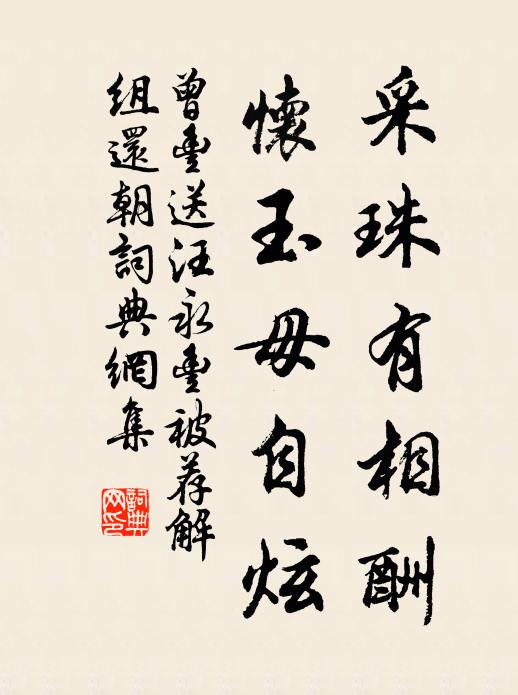 采珠有相酬
懷玉毋自炫
曾豐送汪永豐被荐解
组還朝詞典網集
詞典
网印